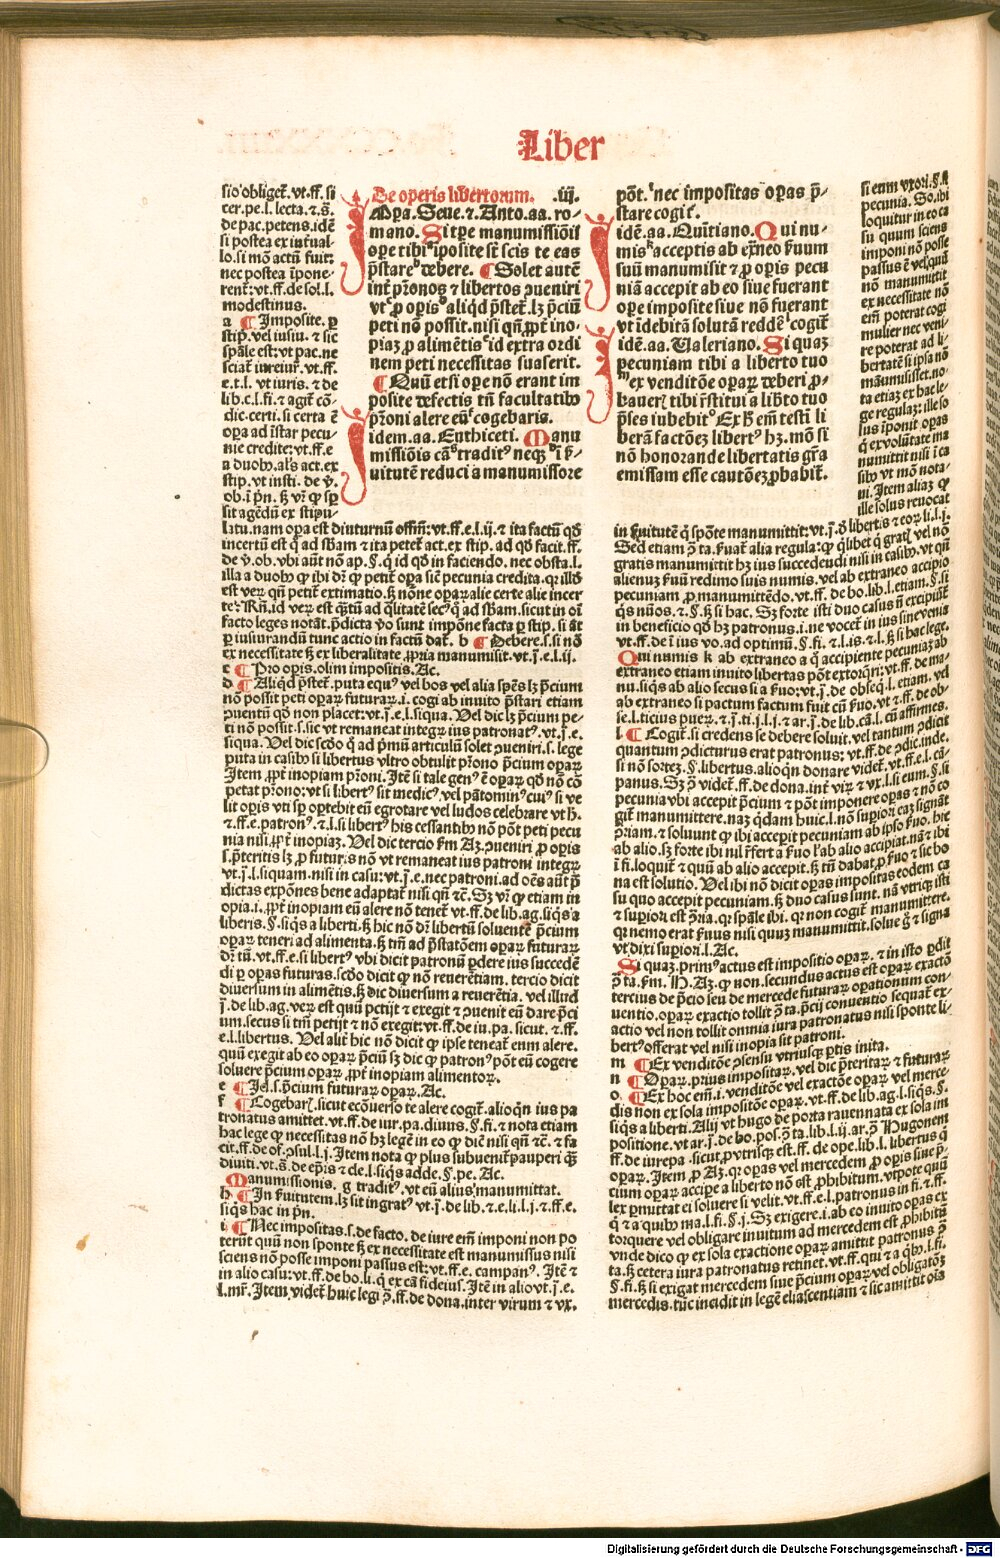 Liber
sio obliget̃.vt.ff.si
cer.pe.l.lecta.⁊.s̃.
de pac.petens.idẽ
si postea ex inṫual-
lo.si mõ actũ fuit:
nec postea ĩpone-
renĩ:vt.ff.de sol.l.
modestinus.
a ¶ Imposite.ꝑ
stip̃.vel iusiu.⁊ sic
e.t.l.vt iuris.⁊ de
lib.c.l.fi.⁊ agit̃ cõ-
dic.certi.si certa ẽ
oꝑa ad ĩstar pecu-
nie credite:vt.ff.e
sit agẽdũ ex stipu-
De operis libertorum. .iij.
Impa.Seue.⁊.Anto.aa.ro-
mano.Si tꝑe manumissiõis
oꝑe tibi ĩposite st̃ scis te eas
p̃stare debere. ¶ Solet autẽ
int̃ pr̃onos ⁊ libertos ꝯueniri
vt ꝓ oꝑis aliqd̃ p̃stet̃.lꝫ p̃ciũ
peti nõ possit.nisi qñ ꝓpt̃ ino-
piaꝫ ꝓ alimẽtis id extra ordi
nem peti necessitas suaserit.
¶ Quũ etsi oꝑe nõ erant im
posite defectis tñ facultatibꝰ
pr̃oni alere eũ cogebaris.
idem.aa.Euthiceti. Manu
missiõis cã traditꝰ neqꝫ ĩ ẜ-
uitutẽ reduci a manumissore
põt. nec impositas oꝑas p̃-
stare cogit̃.
idẽ.aa.Quĩtiano. Qui nu-
mis acceptis ab ext̃neo ẜuum
suũ manumisit ⁊ ꝓ oꝑis pecu
niã accepit ab eo siue fuerant
oꝑe imposite siue nõ fuerant
vt ĩdebitã solutã reddẽ cogit̃
idẽ.aa.Valeriano. Si quaꝫ
pecuniam tibi a liberto tuo
ex venditõe oꝑaꝝ deberi ꝓ-
baueꝝ tibi r̃stitui a lib̃to tuo
p̃ses iubebit Ex h̃ em̃ testi li
berã factõeꝫ libertꝰ hꝫ.mõ si
nõ honorande libertatis gr̃a
emissam esse cautõeꝫ ꝓbabit̃.
si enim vxori.§.fi
pecunia. So.ibi
loquitur in eo ca
su quum sciens
imponi nõ posse
nõ manumittit
ex necessitate nõ
em̃ poterat cogi
mulier nec veni
re poterat ad li-
bertatẽ si ipsa nõ
manumisisset.no-
ta etiaꝫ ex hac le-
ge regulaꝫ:ille so
lus ĩponit oꝑas
q̃ ex volũtate ma
numittit nisi ĩ ca
ille solus reuocat
latu.nam oꝑa est diuturnũ offm̃:vt.ff.e.l.ij.⁊ ita factũ qd̃
facto leges notãt.p̃dicta ṽo sunt impõne facta ꝑ stip.si at̃
ꝑ iusiurandũ tunc actio in factũ dat̃. b ¶ Debere.s.si nõ
ex necessitate sꝫ ex liberalitate ꝓpria manumisit.vt.j̃.e.l.ij.
c ¶ Pro oꝑis.olim impositis.Ac.
d ¶ Aliqd̃ p̃stet̃.puta equꝰ vel bos vel alia sp̃es lꝫ p̃cium
nõ possit peti oꝑaꝝ futuraꝝ.i.cogi ab inuito p̃stari etiam
ꝯuenti qd̃ non placet:vt.j̃.e.l.siqua. Vel dic lꝫ p̃cium pe-
ti nõ possit.s.sic vt remaneat integꝝ ius patronatꝰ.vt.j̃.e.
siqua. Vel dic scd̃o q̃ ad p̃mũ articulũ solet ꝯueniri.s.lege
puta in casibꝰ si libertus vltro obtulit pr̃ono p̃cium oꝑaꝝ
Item ꝓpt̃ inopiam pr̃oni. Itẽ si tale genꝰ ẽ oꝑaꝝ qd̃ nõ cõ
petat pr̃ono:vt si libertꝰ sit medicꝰ.vel pãtominꝰ cuiꝰ si ve
lit oꝑis vti sp̃ oportebit eũ egrotare vel ludos celebrare vt h̃.
⁊.ff.e.patronꝰ.⁊.l.si libertꝰ his cessantibꝰ nõ põt peti pecu
nia nisi ꝓpt̃ inopiaꝫ. Vel dic tercio ẜm Aꝫ.ꝯueniri ꝓ oꝑis
s.p̃teritis lꝫ ꝓ futuris nõ vt remaneat ius patroni integꝝ
vt.j̃.l.siquam.nisi in casu:vt.j̃.e.nec patroni.ad oẽs aũt p̃
dictas expõnes bene adaptat̃ nisi qñ ⁊c̃. Sꝫ vr̃ ꝙ etiam in
opia.i.ꝓpt̃ inopiam eũ alere nõ tenet̃ vt.ff.de lib.ag.siqs̃ a
liberis.§.siqs̃ a liberti.sꝫ hic nõ dr̃ libertũ soluentẽ p̃cium
oꝑaꝝ teneri ad alimenta.sꝫ tm̃ ad p̃statõem oꝑaꝝ futuraꝝ
dr̃ tñ.vt.ff.e.si libertꝰ vbi dicit patronũ ꝑdere ius succedẽ
di ꝑ oꝑas futuras.scd̃o dicit ꝙ nõ reuerẽtiam.tercio dicit
diuersum in alimẽtis.sꝫ dic diuersum a reuerẽtia. vel illud
j̃.de lib.ag.veꝝ est quũ petijt ⁊ exegit ⁊ ꝯuenit eũ dare p̃ci
um.secus si tm̃ petijt ⁊ nõ exegit:vt.ff.de iu.pa.sicut.⁊.ff.
e.l.libertus. Vel alit̃ hic nõ dicit ꝙ ipse teneat̃ eum alere.
quũ exegit ab eo oꝑaꝝ p̃ciũ sꝫ dic ꝙ patronꝰ põt eũ cogere
soluere p̃cium oꝑaꝝ ꝓpt̃ inopiam alimentoꝝ.
e ¶ Id.s.p̃cium futuraꝝ oꝑaꝝ.Ac.
f ¶ Cogebarꝭ.sicut ecõuerso te alere cogit̃.alioqñ ius pa
tronatus amittet.vt.ff.de iur.pa.diuus.§.fi.⁊ nota etiam
hac lege ꝙ necessitas nõ hꝫ legẽ in eo ꝙ dicẽ nisi qñ ⁊c̃.⁊ fa
cit.ff.de of.ꝓsul.l.j. Item nota ꝙ plus subuenit̃ pauperi qꝫ
diuiti.vt.s̃.de ep̃is ⁊ cle.l.siqs̃ adde.§.pe.Ac.
Manumissionis. g traditꝰ.vt eũ alius manumittat.
h ¶ In ẜuitutem.lꝫ sit ingratꝰ vt.j̃.de lib.⁊ e.li.l.j.⁊.ff.e.
siqs̃ hac in p̃n.
i ¶ Nec impositas.s.de facto.de iure em̃ imponi non po
terũt quũ non sponte sꝫ ex necessitate est manumissus nisi
sciens nõ posse imponi passus est:vt.ff.e.campanꝰ. Itẽ ⁊
in alio casu:vt.ff.de bo.li.q̃ ex cã fideius. Itẽ in alio vt.j̃.e.
l.mr̃. Item videt̃ huic legi ꝯ̃.ff.de dona.inter virum ⁊ vx.
in ẜuitutẽ q̃ spõte manumittit:vt.j̃.d̃ libertis ⁊ eoꝝ li.l.j.
Sed etiam ꝯ̃ ta.ẜuat̃ alia regula:ꝙ q̃libet q̃ gratꝭ vel nõ
gratis manumittit hꝫ ius succedendi nisi in casibꝰ.vt qñ
alienuꝫ ẜuũ redimo suis numis.vel ab extraneo accipio
pecuniam ꝓ manumittẽdo.vt.ff.de bo.lib.l.etiam.§.si
in beneficio qd̃ hꝫ patronus.i.ne vocet̃ in ius sine venia
vt.ff.de ĩ ius vo.ad optimũ.§.fi.⁊.l.is.⁊.l.sꝫ si hac lege.
Qui numis k ab extraneo a q̃ accipiente pecuniaꝫ ab
extraneo etiam inuito libertas põt extorq̃ri:vt.ff.de ma-
nu.siqs̃ ab alio secus si a ẜuo:vt.j̃.de obseq̃.l.etiam.vel
ab extraneo si pactum factum fuit cũ ẜuo.vt ⁊.ff.de ob-
se.l.ticius pueꝝ.⁊.j̃.ti.j.l.j.⁊ ar.j̃.de lib.cã.l.cũ affirmes.
l ¶ Cogit̃.si credens se debere soluit.vel tantum ꝯdicit
quantum ꝯdicturus erat patronus:vt.ff.de ꝯdic.inde.
si nõ sorteꝫ.§.libertus.alioqñ donare videt̃.vt.ff.e.l.cã-
panus. Sꝫ ꝯ̃ videt̃.ff.de dona.int̃ viꝝ ⁊ vx.l.si eum.§.si
pecunia vbi accepit p̃cium ⁊ põt imponere oꝑas ⁊ nõ co
git̃ manumittere.naꝫ q̃dam huic.l.nõ supiori eaꝫ signãt
ꝯ̃riam.⁊ soluunt ꝙ ibi accepit pecuniam ab ipso ẜuo.hic
na est solutio. Vel ibi nõ dicit oꝑas impositas eodem ca
su quo accepit pecuniam.sꝫ duo casus sunt.nã vtriqꝫ isti
⁊ supiori est ꝯ̃ria.qꝛ sp̃ale ibi.qꝛ non cogit̃ manumittere.
qꝛ nemo erat ẜuus nisi quuꝫ manumittit.solue g̃ ⁊ signa
vt dixi supiori.l.Ac.
Si quaꝫ.primꝰ actus est impositio oꝑaꝝ.⁊ in isto ꝑdit
ꝯ̃ ta.ẜm. H. Aꝫ.ꝙ non.secundus actus est oꝑaꝝ exactõ
tercius de p̃cio seu de mercede futuraꝝ oꝑationum con-
uentio.oꝑaꝝ exactio tollit ꝯ̃ ta.p̃cij conuentio sequat̃ ex-
actio vel non tollit omnia iura patronatus nisi sponte li-
bertꝰ offerat vel nisi inopia sit patroni.
m ¶ Ex venditõe ꝯsensu vtriusqꝫ ꝑtis inita.
n ¶ Oꝑaꝝ.prius impositaꝝ.vel dic p̃teritaꝝ ⁊ futuraꝝ
o ¶ Ex hoc em̃.i.venditõe vel exactõe oꝑaꝝ vel merce-
dis non ex sola impositõe oꝑaꝝ.vt.ff.de lib.ag.l.siqs̃.§.
siqs̃ a liberti. Alij vt hugo de porta rauennata ex sola im
positione.vt ar.j̃.de bo.pos.ꝯ̃ ta.lib.l.ij.ar.ꝯ̃ Hugonem
ff.de iure pa.sicut.ꝓ vtrisqꝫ est.ff.de ope.lib.l.libertus q̃
oꝑaꝝ. Item ꝓ Aꝫ.qꝛ oꝑas vel mercedem ꝓ oꝑis siue p̃-
cium oꝑaꝝ accipe a liberto nõ est ꝓhibitum.vtpote quũ
lex ꝑmittat ei soluere si velit.vt.ff.e.l.patronus in fi.⁊.ff.
q̃ ⁊ a quibꝰ ma.l.fi.§.j. Sꝫ exigere.i.ab eo inuito oꝑas ex
torquere vel obligare inuitum ad mercedem est ꝓhibitũ
vnde dico ꝙ ex sola exactione oꝑaꝝ amittit patronus ꝯ̃
ta.sꝫ cetera iura patronatus retinet.vt.ff.qui ⁊ a q̃bꝰ.l.fi.
§.fi.sꝫ si exigat mercedem siue p̃cium oꝑaꝝ vel obligatõꝫ
mercedis.tũc incidit in legẽ eliasentiam ⁊ sic amittit oĩa